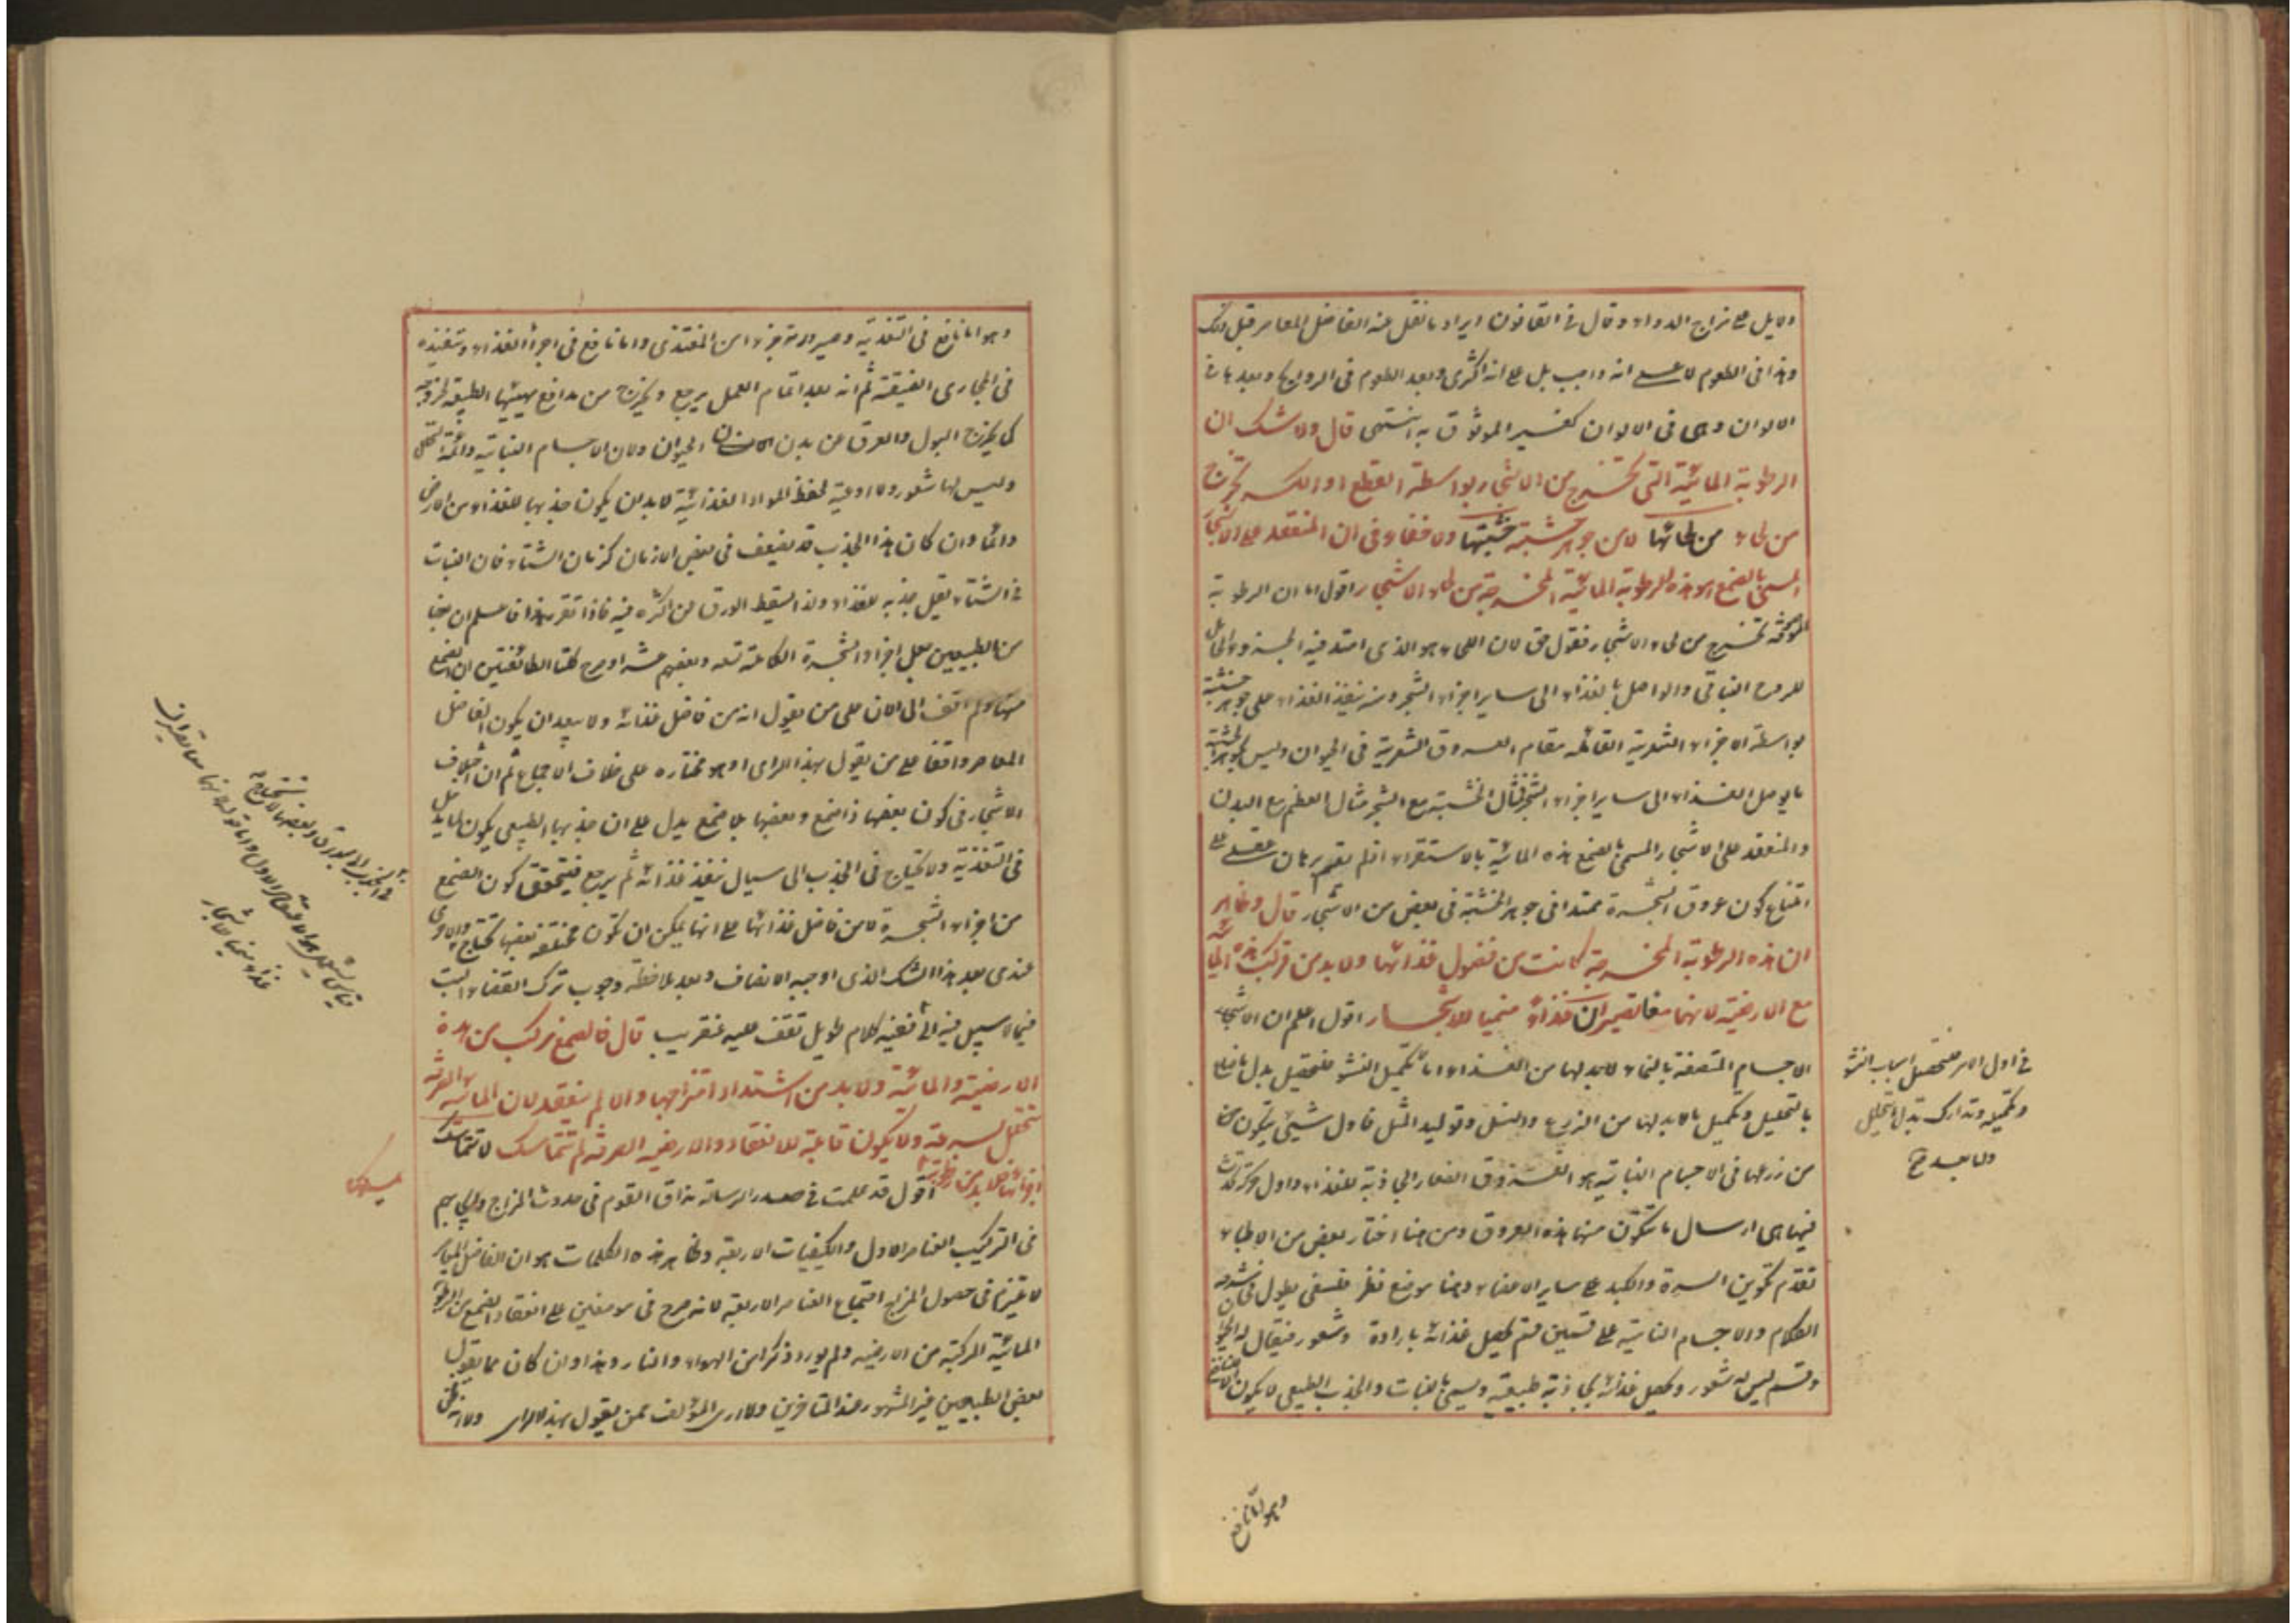 دلايل على مزاج الدواء وقال في القانون ايراد ما نقل عنه الفاضل المعاصر قبل ذلك
وهذا في الطعوم لا على انه واجب بل على انه اكثرى وبعد الطعوم في الروايح وبعدها في
الالوان وهى في الالوان كغير الموثوق به انتهى قال ولا شك ان
الرطوبة المائية التى تخرج من الاشجار بواسطة القطع او الكسر تخرج
من لحاء من لحائها لا من جوهر خشبتها ولا خفاء في ان المنعقد على الاشجار
المسمى بالصمغ هو هذه الرطوبة المائية المخرجة من لحاء الاشجار اقول اما ان الرطوبة
تخرج من لحاء الاشجار فقول حق لان اللحاء هو الذى امتد فيه
للروح النباتى والواصل بالغذاء الى ساير اجزاء الشجر ومنه ينفذ الغذاء على جوهر خشبته
بواسطة الاجزاء الشعرية القائمة مقام العروق الشعرية في الحيوان وليس لجوهر الخشبة
ما يوصل الغذاء الى ساير اجزاء الشجر فمثال الخشبة مع الشجر مثال العظم مع البدن
والمنعقد على الاشجار المسمى بالصمغ هذه المائية بالاستقراء اذ لم يقم برهان عقلى على
امتناع كون عروق الشجرة ممتدا في جوهر الخشبة في بعض من الاشجار قال وظاهر
ان هذه الرطوبة المخرجة كانت من فضول غذائها ولا بد من تركب هذه المائية
مع الارضية لانهما معا تصيران غذاء منميا للاشجار اقول اعلم ان الاشجار
الاجسام المتصفة بالنماء لا بد لها من الغذاء اما لتكميل النشو فتحصيل بدل ما
بالتحليل وتكميل ما لا بد لها من الزرع والنسل وتوليد المثل فاول شيئ يتكون
من زرعها في الاجسام النباتية هو العروق الصغار الجاذبة للغذاء واول حركة
فيها هى ارسال ما يتكون منها هذه العروق ومن هنا اختار بعض من الاطباء
تقدم تكوين السرة والكبد على ساير الاعضاء وهنا موضع نظر فلسفى يطول في شرحه
الكلام والاجسام النباتية على قسمين قسم يحصل غذائه بارادة وشعور فيقال له الحيوان
وقسم ليس له شعور ويحصل غذائه بجاذبة طبيعية ويسمى بالنبات والجذب الطبيعى لا يكون
في اول الامر فتحصيل اسباب النشو
وتكميله وتدارك بدل ما يتحلل
وهو اما نافع
وهو اما نافع في التغذية وصيرورته جزءا من المغتذى واما نافع في اجراء الغذاء وتنفيذه
في المجارى الضيقة ثم انه بعد اتمام العمل يرجع ويخرج من مدافع هيئتها الطبيعة لخروجه
كما يخرج البول والعرق من بدن الانسان الحيوان ولان الاجسام النباتية دائمة التحلل
وليس لها شعور ولا اوعية لحفظ المواد الغذائية لا بد ان يكون جذبها للغذاء من الارض
دائما وان كان هذا الجذب قد يضعف في بعض الازمان كزمان الشتاء فان النبات
في الشتاء يقل جذبه للغذاء ولذا يسقط الورق من اكثره فيه فاذا تقرر هذا فاعلم ان بعضا
من الطبيعيين جعل اجزاء الشجرة الكاملة تسعة وبعضهم عشرا وصرح كلتا الطائفتين ان الصمغ
منها ولم اقف الى الان على من يقول انه من فاضل غذائه ولا يبعد ان يكون الفاضل
المعاصر واقفا على من يقول بهذا الراى او هو مختاره على خلاف الاجماع ثم ان اختلاف
الاشجار في كون بعضها ذا صمغ وبعضها بلا صمغ يدل على ان جذبها الطبيعى يكون لما يدخل
في التغذية ولا تحتاج في الجذب الى سيال ينفذ غذائه ثم يرجع فيتحقق كون الصمغ
من اجزاء الشجرة لا من فاضل غذائها على انها يمكن ان تكون مختلفة فبعضها تحتاج
عندى بعد هذا الشك الذى اوجبه الانصاف وبعد ملاحظة وجوب ترك القضاء البت
فيما لا سبيل فيه الى تعيينه كلام طويل تقف عليه عنقريب قال فالصمغ مركب من هذه
الارضية والمائية ولا بد من اشتداد امتزاجها والا لم ينعقد لان المائية الصرفة
تتحلل بسرعة ولا يكون قابلة للانعقاد والارضية الصرفة لم تتماسك لا تتماسك
اجزائها فلا بد من رطوبة اقول قد علمت في صدر الرسالة مذاق القوم في حدوث المزاج
في التركيب العناصر الاول والكيفيات الاربعة وظاهر هذه الكلمات هو ان الفاضل المعاصر
في حصول المزاج اجتماع العناصر الاربعة لانه صرح في موضعين على انعقاد الصمغ من الرطوبة
المائية المركبة من الارضية ولم يورد ذكرا من الهواء والنار وهذا وان كان مما يقول
بعض الطبيعيين غير المشهور عند المتاخرين ولا ارى المؤلف ممن يقول بهذا الراى